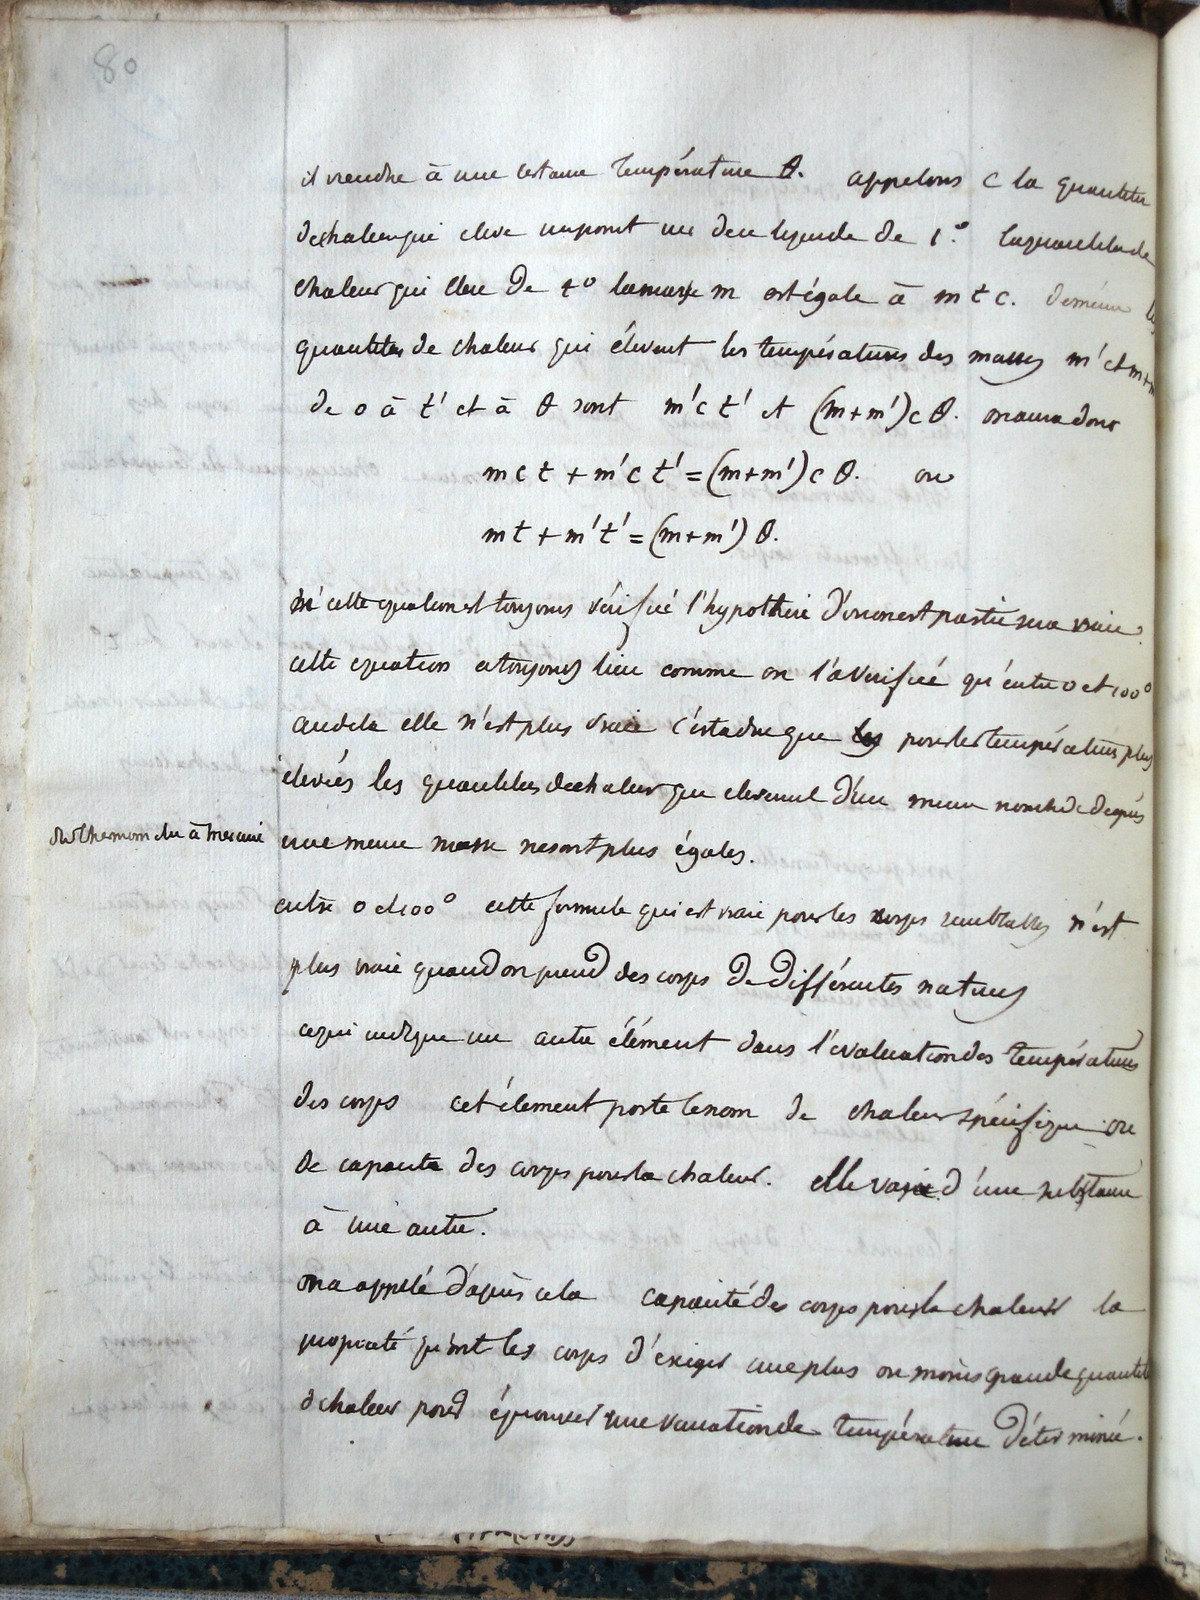 80
il viendra à une certaine température θ. appelons c la quantité
de chaleur qui eleve un point un deu liquide de 1°. la quantité de
chaleur qui eleve de t° la masse m est égale à m t c. de même les
quantités de chaleur qui élevent les températures des masses m' et m+m'
de 0 à t' et à θ sont m'c t' et (m+m')c θ. on aura donc
m c t + m'c t' = (m+m')c θ. ou
m t + m't' = (m+m') θ.
si cette equation est toujours vérifiée l'hypothèse d'où on est partie sera vraie.
cette equation a toujours lieu comme on l'a verifiée qu'entre 0 et 100°
au dela elle n'est plus vraie c'est a dire que pour les températures plus
elevées les quantités de chaleur qui elevent d'un meme nombre de degrés
du thermom etre à mercure
une meme masse ne sont plus égales.
entre 0 et 100° cette formule qui est vraie pour les corps semblables n'est
plus vraie quand on prend des corps de différentes natures
ce qui indique un autre élément dans l'evaluation des températures
des corps cet élement porte le nom de chaleur spécifique ou
de capacité des corps pour la chaleur. elle varie d'une substance
à une autre.
on a appelé d'après cela capacité des corps pour la chaleur la
propriété qu'ont les corps d'exiger une plus ou moins grande quantité
de chaleur pour éprouver une variation de température déterminée.